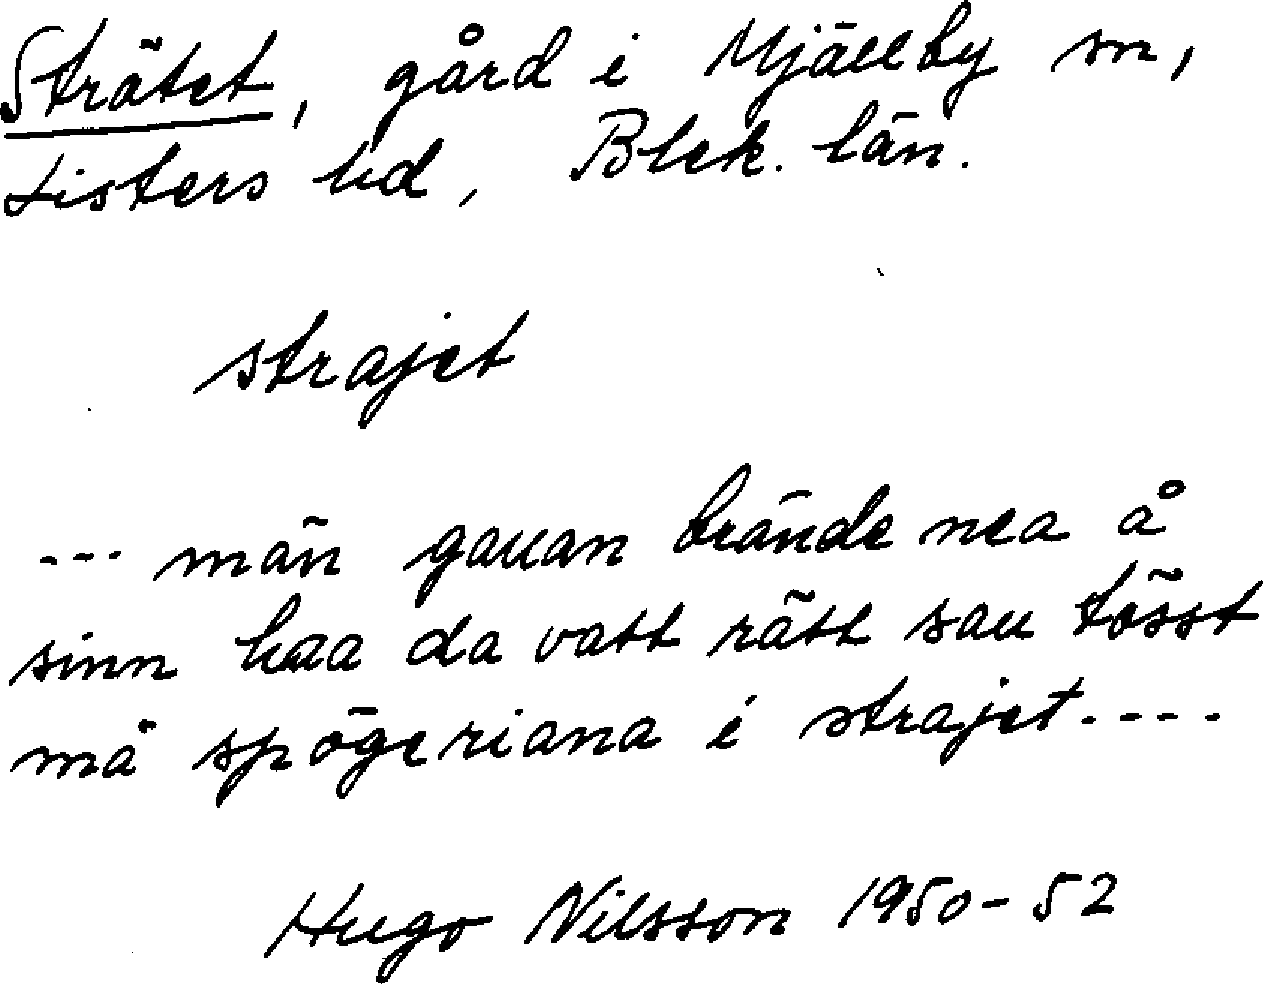 Strätet, gård i Mjällby sn,
Listers hd, Blek. län.
strajet
--- män gauan brände nea å
sinn haa da vatt rätt sau tösst
mä spögeriana i strajet----
Hugo Nilsson 1950-52